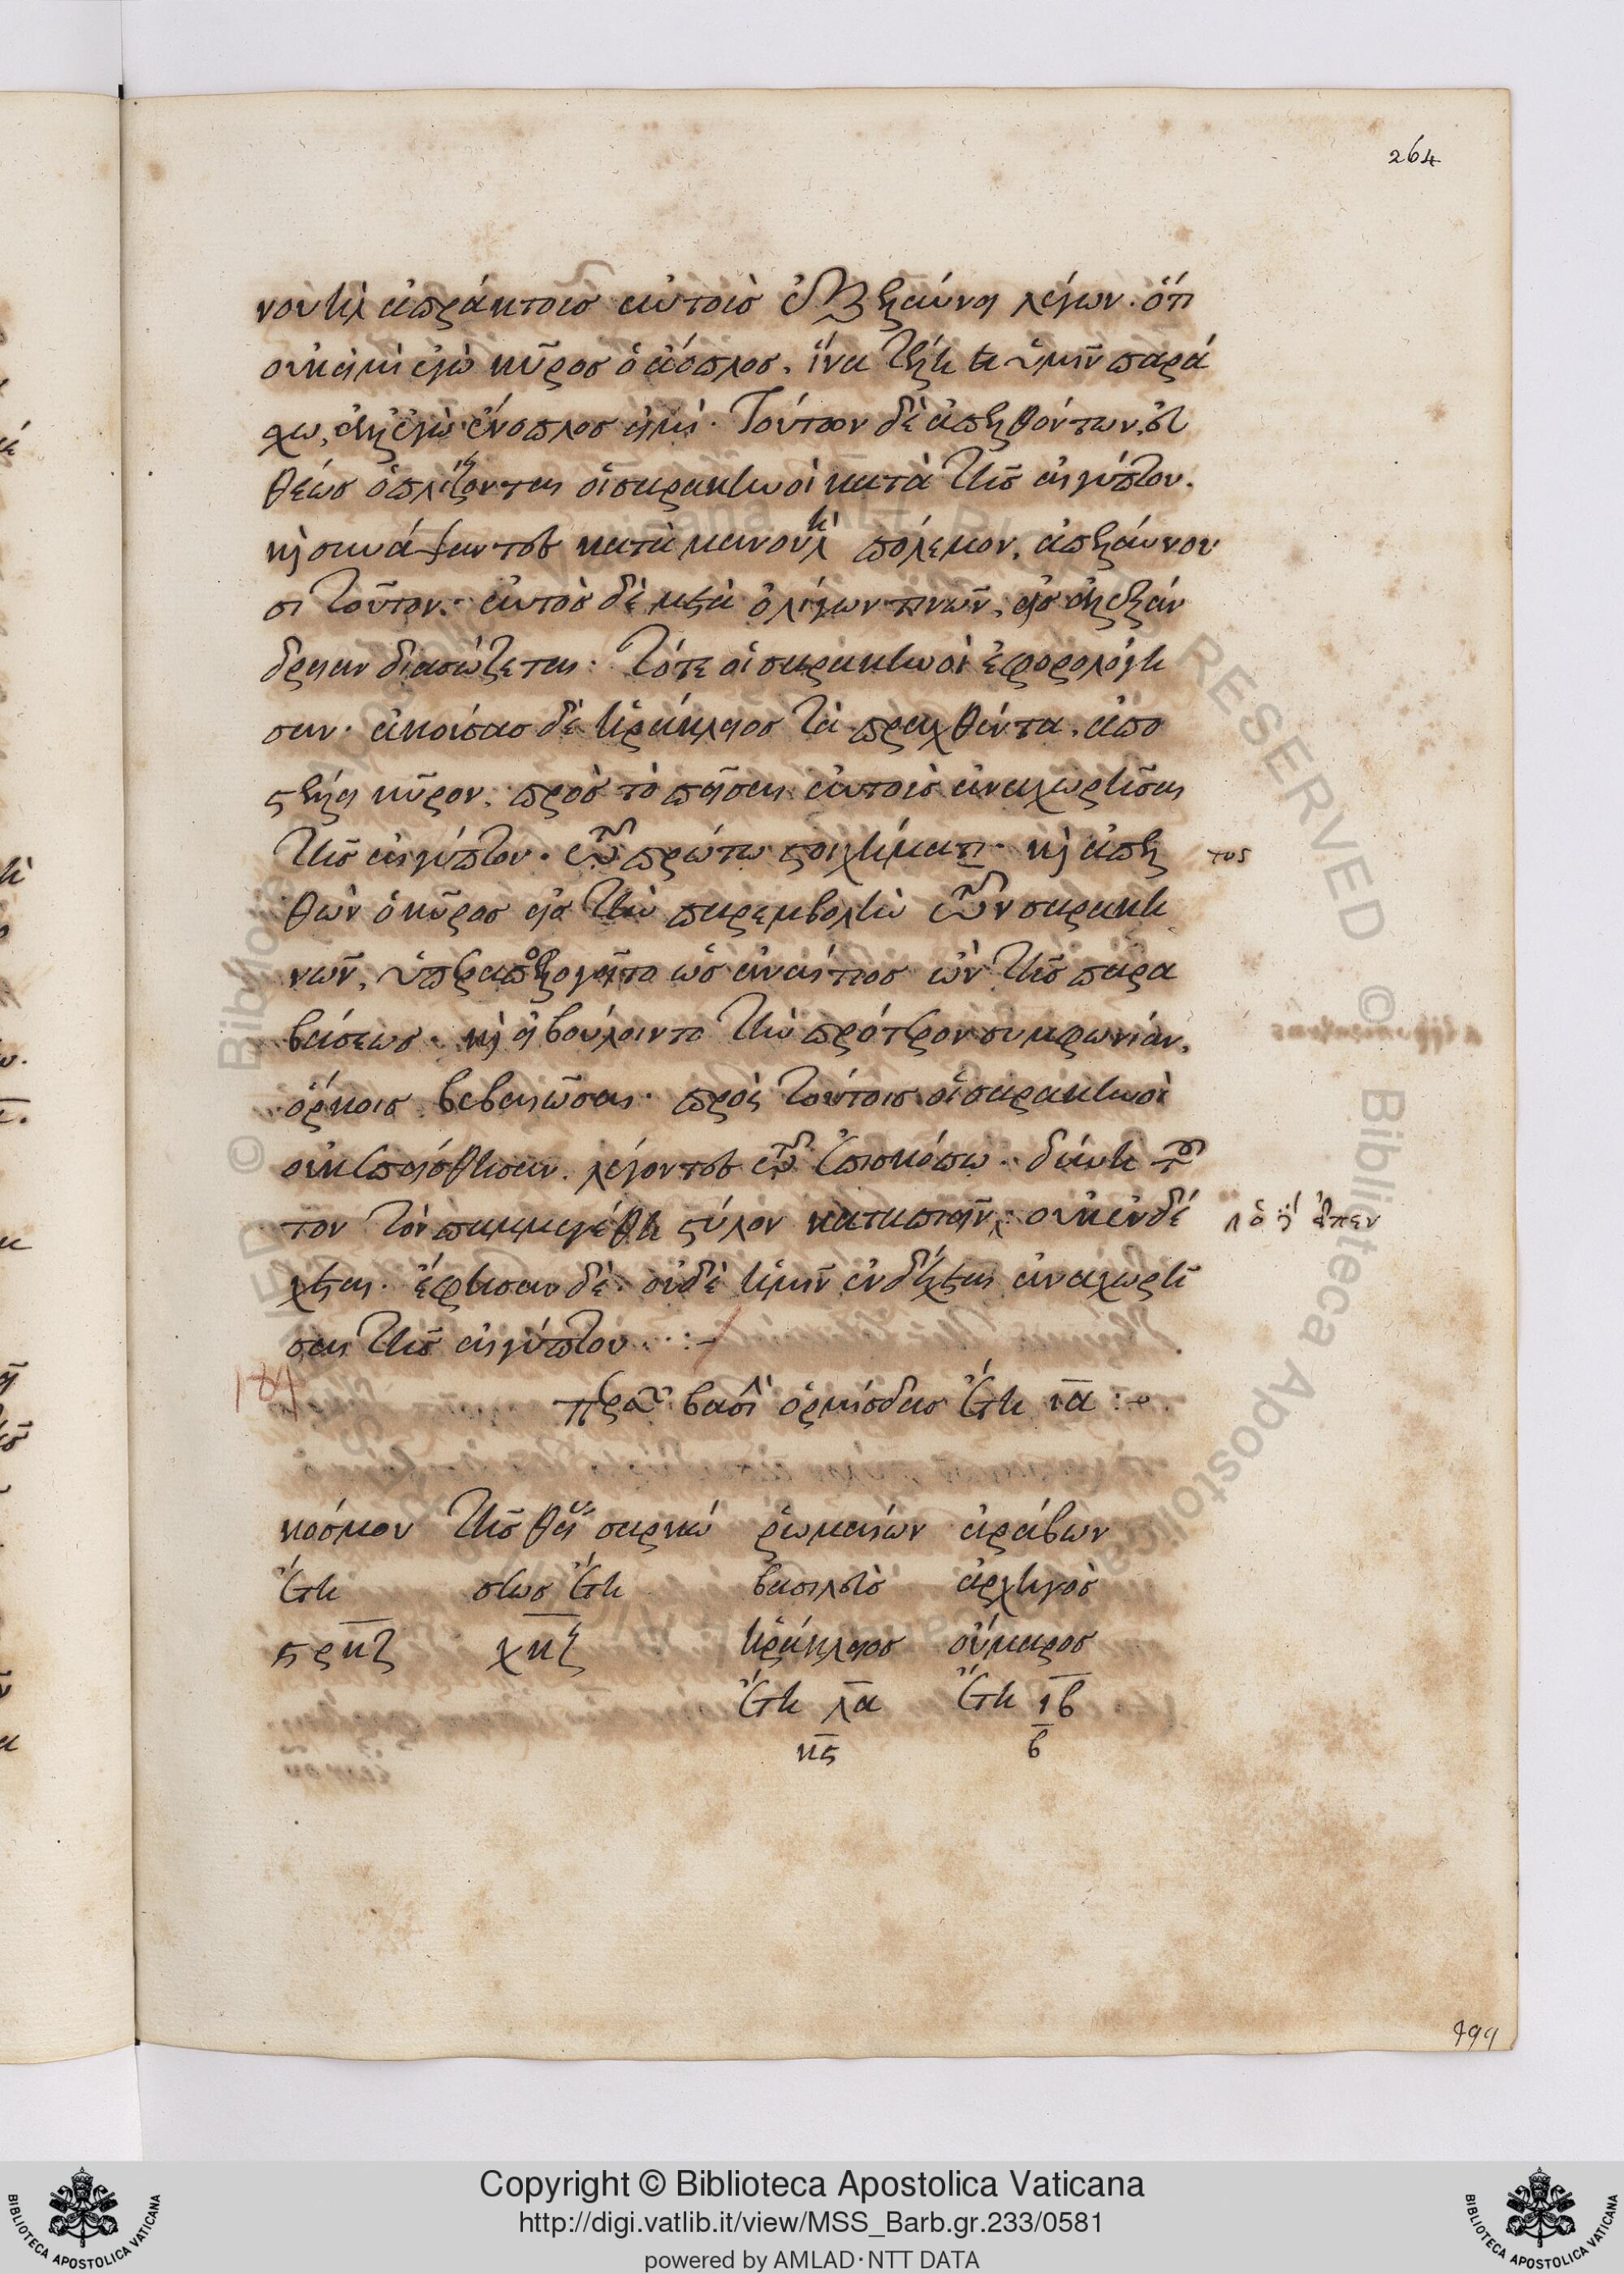 264
νουὴλ ἀπράκτους αὐτοὺς ἐξελαύνει λέγων. ὅτι
οὐκ εἰμὶ ἐγὼ κῦρος ὁ ἄοπλος, ἵνα τέλη ὑμῖν παρά
σχω, ἀλλ' ἐγὼ ἔνοπλος εἰμί. Τούτων δὲ ἀπελθόντων, εὐ
θέως ὁπλίζονται οἱ σαρακηνοὶ κατὰ τῆς αἰγύπτου.
καὶ συνάψαντες κατὰ μανουὴλ πόλεμον, ἀπελαύνου
σι τοῦτον. αὐτὸς δὲ μετὰ ὀλίγων τινῶν, εἰς ἀλεξάν
δρειαν διασώζεται. τότε οἱ σαρακηνοὶ ἐφορολόγη
σαν. ἀκούσας δὲ ἡράκλειος τὰ πραχθέντα, ἀπο
στέλλει κῦρον, πρὸς τὸ πεῖσαι αὐτοὺς ἀναχωρῆσαι
τῆς αἰγύπτου. τῷ πρώτῳ στοιχήματι. καὶ ἀπελ
τος
θὼν ὁ κῦρος εἰς τὴν παρεμβολὴν τῶν σαρακη
νῶν, ὑπεραπελογεῖτο ὡς ἀναίτιος ὢν τῆς παρα
βάσεως. καὶ εἰ βούλοιντο τὴν πρότερον συμφωνίαν,
ὅρκοις βεβαιῶσαι. πρὸς τούτοις οἱ σαρακηνοὶ
οὐκ ἐπείσθησαν. λέγοντες τῷ ἐπισκόπῳ. δύνῃ τοῦ
τον τὸν παμμεγέθη στύλον καταπιεῖν; οὐκ ἐνδέ
λὁς εἶπεν
χεται. ἔφησαν δὲ. οὐδὲ ἡμῖν ἐνδέχεται ἀναχωρῆ
σαι τῆς αἰγύπτου. :-
184
περσῶν βασιλ ὁρμίσδας ἔτη ια :-
κόσμου τῆς θεί σαρκώ ῥωμαίων ἀράβων
ἔτη σεως ἔτη βασιλεὺς ἀρχηγὸς
ϛρκζ χκζ ἡράκλειος οὔμαρος
ἔτη λα ἔτη ιβ
κϛ β
499
Copyright © Biblioteca Apostolica Vaticana
http://digi.vatlib.it/view/MSS_Barb.gr.233/0581
powered by AMLAD·NTT DATA
BIBLIOTECA APOSTOLICA VATICANA
BIBLIOTECA APOSTOLICA VATICANA